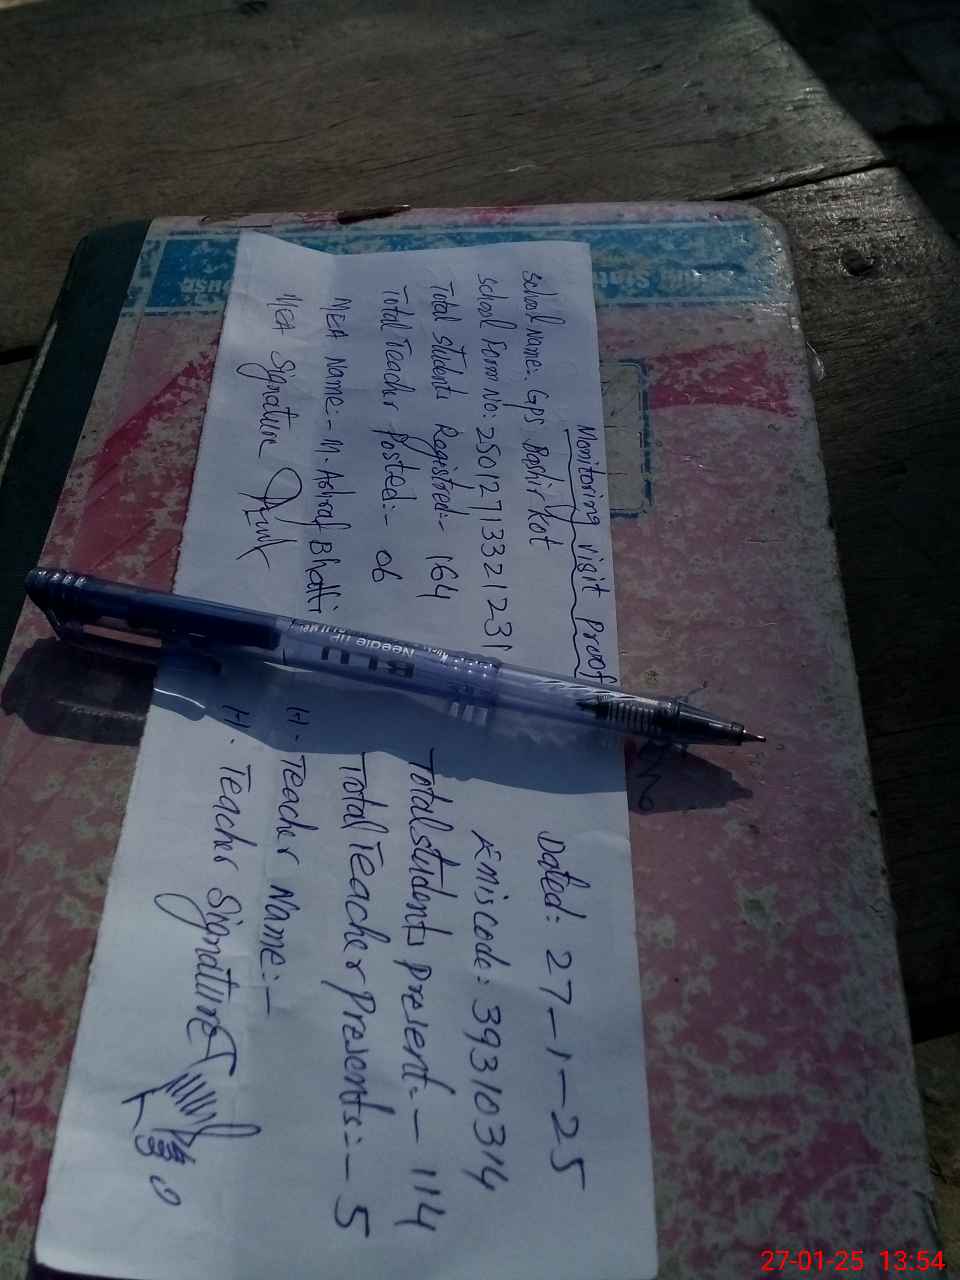 Monitoring visit proof
School Name:- GPS Bashir Kot
Dated: 27-1-25
School Form No: 25012713321231
Emis code: 39310314
Total students Registred:- 164
Total students present:- 114
Total Teacher Posted:- 06
Total Teacher Presents:- 5
MEA Name:- M. Ashraf Bhatti
H. Teacher Name:-
MEA Signature
H. Teacher Signature
Needle tip
27-01-25 13:54